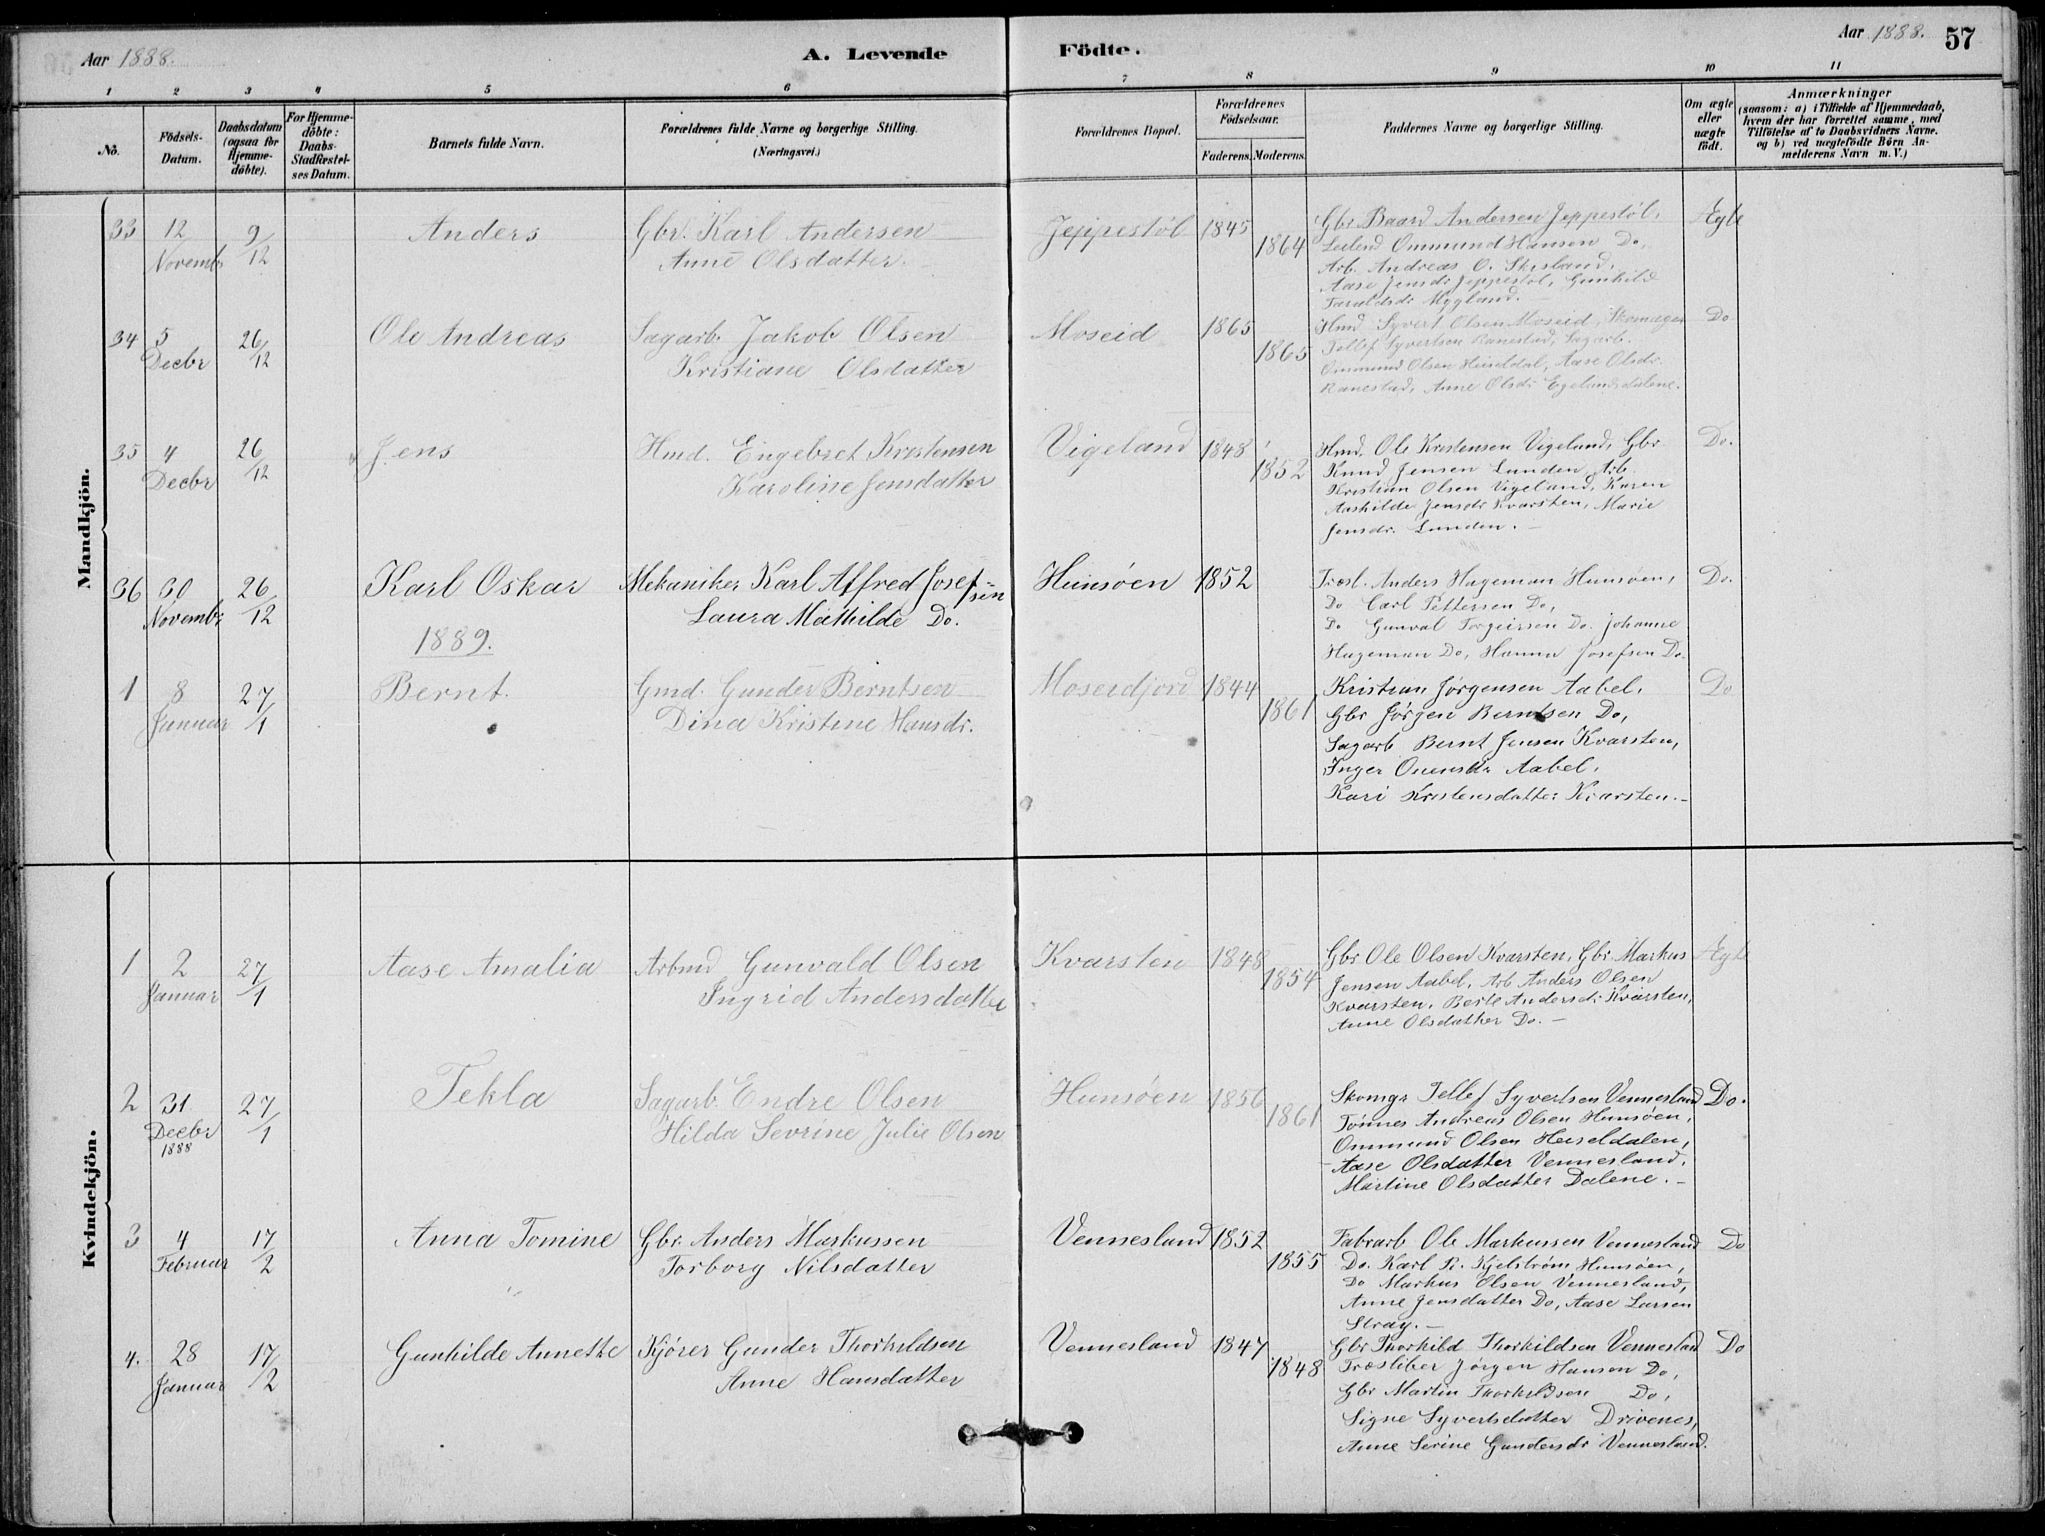 Aar 1888.
A. Levende Födte.
Aar 1888. 57
1 2 3 4 5 6 7 8 9 10 11
No. Födsels-Datum. Daabsdatum (ogsaa for Hjemme-döbte). For Hjemme-döbte: Daabs-Stadfæstel-ses Datum. Barnets fulde Navn. Forældrenes fulde Navne og borgerlige Stilling. (Næringsvei.) Forældrenes Bopæl. Forældrenes Födselsaar. Faderens. Moderens. Faddernes Navne og borgerlige Stilling. Om ægte eller uægte födt. Anmærkninger (saasom: a) i Tilfælde af Hjemmedaab, hvem der har forrettet samme, med Tilföielse af to Daabsvidners Navne. og b) ved uægtefödte Börn An-melderens Navn m. V.)
Mandkjön.
33 12 Novembr 9/12 Anders
Gbr. Karl Andersen
Anne Olsdatter.
Jeppestöl 1845 1864
Gbr Baard Andersen Jeppestöl,
Leilend Ommund Hansen Do,
Arb. Andreas O. Skisland,
Aase Jensdr Jeppestöl, Gunhild
Taraldsdr Mygland.
Ægte
34 5 Decbr 26/12 Ole Andreas
Sagarb. Jakob Olsen
Kristiane Olsdatter
Moseid 1865 1865
Hmd Syvert Olsen Moseid, Skomager
Tellef Syvertsen Ranestad, Sagarb.
Ommund Olsen Heiseldal, Aase Olsdr.
Ranestad, Anne Olsdr Egelandsdalene.
Do
35 4 Decbr 26/12 Jens
Hmd. Engebret Kristensen
Karoline Jensdatter
Vigeland 1848 1852
Hmd. Ole Kristensen Vigeland, Gbr
Knud Jensen Lunden, Arb.
Kristian Olsen Vigeland, Karen
Aashilde Jensdr Kvarsten, Marie
Jensdr. Lunden.
Do.
36 30 Novembr 26/12 Karl Oskar
Mekaniker Karl Alfred Josef-sen
Laura Mathilde Do.
Hunsöen 1852
Træsl. Anders Hageman Hunsöen,
Do Carl Pettersen Do,
Do Gunval Torgeirsen Do. Johanne
Hageman Do, Hanna Josefsen Do.
Do.
1889.
1 8 Januar 27/1 Bernt.
Gmd. Gunder Berntsen
Dina Kristine Hansdr.
Moseidjord 1844 1861
Kristian Jörgensen Aabel,
Gbr Jörgen Berntsen Do,
Sagarb Bernt Jensen Kvarsten,
Inger Onensdr Aabel,
Kari Kristensdatter Kvarsten.
Do
Kvindekjön.
1 2 Januar 27/1 Aase Amalia
Arbmd Gunvald Olsen
Ingrid Andersdatter
Kvarsten 1848 1854
Gbr Ole Olsen Kvarsten, Gbr Markus
Jensen Aabel, Arb Anders Olsen
Kvarsten, Berte Andersdr Kvarsten,
Anne Olsdatter Do.
Ægte
2 31 Decbr 1888 27/1 Tekla
Sagarb. Endre Olsen
Hilda Sevrine Julie Olsen
Hunsöen 1856 1861
Skomgr Tellef Syvertsen Vennesland
Tönnes Andreas Olsen Hunsöen,
Ommund Olsen Heiseldalen,
Aase Olsdatter Vennesland,
Martine Olsdatter Dalene.
Do.
3 4 Februar 17/2 Anna Tomine
Gbr. Anders Markussen
Torborg Nilsdatter
Vennesland 1852 1855
Fabrarb Ole Markussen Vennesland
Do. Karl R. Kjelström Hunsöen,
Do Markus Olsen Vennesland,
Anne Jensdatter Do, Aase Larsen
Stray.
Do
4. 28 Januar 17/2 Gunhilde Annette
Kjörer Gunder Thorkildsen
Anne Hansdatter
Vennesland 1847 1848
Gbr Thorkild Thorkildsen Vennesland
Træsliber Jörgen Hanson Do,
Gbr Martin Thorkildsen Do,
Signe Syvertsdatter Drivenes,
Anne Serine Gundersdr Vennesland.
Do